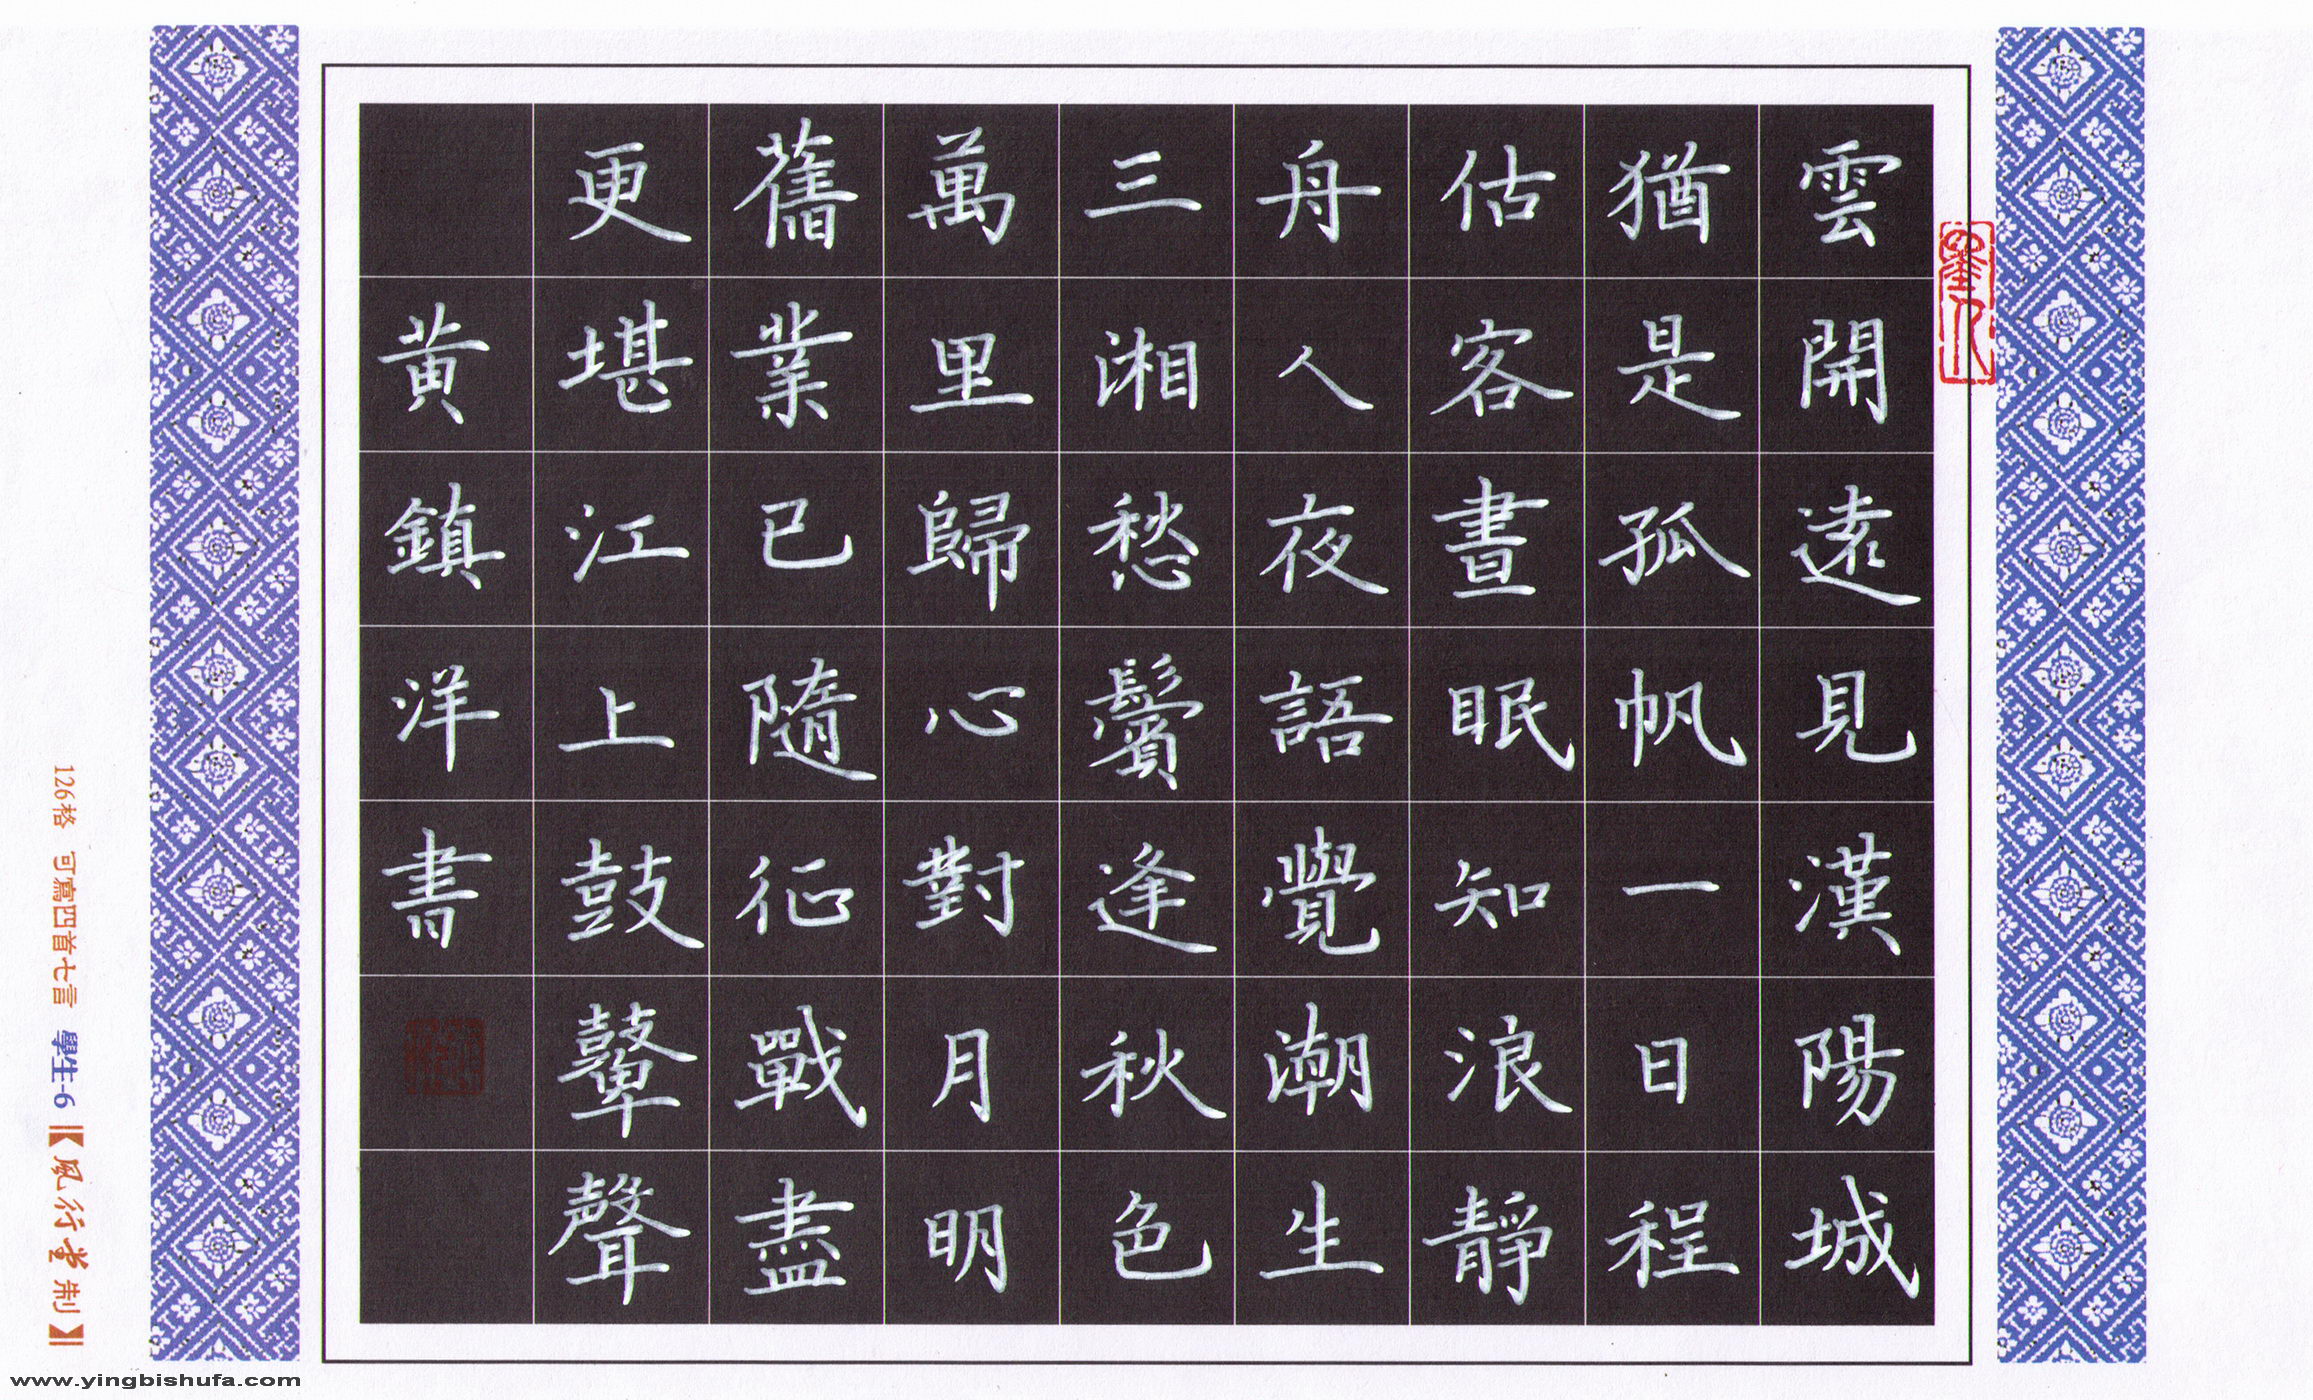 雲開遠見漢陽城
猶是孤帆一日程
估客晝眠知浪靜
舟人夜語覺潮生
三湘愁鬢逢秋色
萬里歸心對月明
舊業已隨征戰盡
更堪江上鼓鼙聲
黃鎮洋書
126格 可寫四首七言 學生-6 【風行堂制】
www.yingbishufa.com